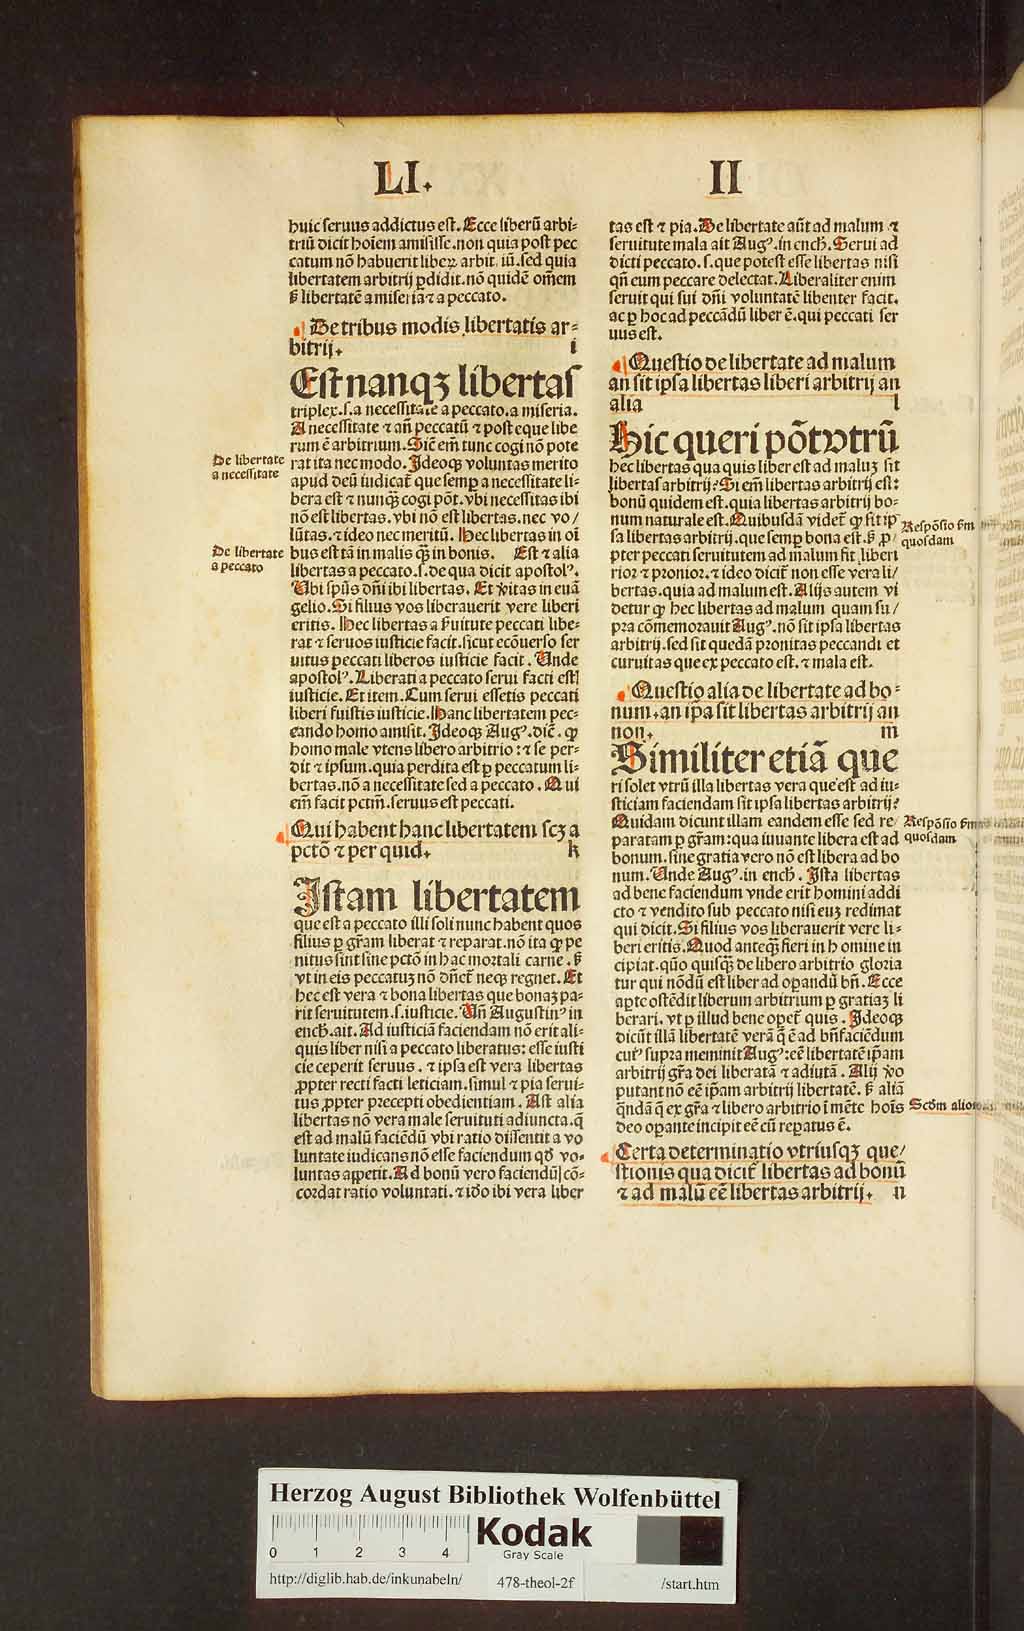 LI. II
huic seruus addictus est. Ecce liberū arbi-
triū dicit hoīem amisisse. non quia post pec
catum nō habuerit liberꝫ arbit iū. sed quia
libertatem arbitrij ꝑdidit. nō quidē om̄em
libertatē a miseria ⁊ a peccato.
De tribus modis libertatis ar-
bitrij. i
Est nanqꝫ libertas
triplex. s. a necessitate a peccato. a miseria.
A necessitate ⁊ an̄ peccatū ⁊ post eque libe
rum ē arbitrium. Sic̄ em̄ tunc cogi nō pote
rat ita nec modo. Ideoqꝫ voluntas merito
apud deū iudicat̄ que semꝑ a necessitate li-
bera est ⁊ nunqꝫ̄ cogi pōt. vbi necessitas ibi
nō est libertas. vbi nō est libertas. nec vo/
lūtas. ⁊ ideo nec meritū. Hec libertas in oī
bus est tā in malis qꝫ̄ in bonis. Est ⁊ alia
libertas a peccato. s. de qua dicit apostolꝰ.
Vbi spūs dn̄i ibi libertas. Et v̄itas in euā
gelio. Si filius vos liberauerit vere liberi
eritis. Hec libertas a s̄uitute peccati libe-
rat ⁊ seruos iusticie facit. sicut ecōuerso ser
uitus peccati liberos iusticie facit. Unde
apostolꝰ. Liberati a peccato serui facti estl
iusticie. Et item. Cum serui essetis peccati
liberi fuistis iusticie. Hanc libertatem pec-
cando homo amisit. Ideoqꝫ Augꝰ. dic̄. ꝙ
homo male vtens libero arbitrio: ⁊ se per-
dit ⁊ ipsum. quia perdita est ꝑ peccatum li-
bertas. nō a necessitate sed a peccato. Qui
em̄ facit pctm̄. seruus est peccati.
Qui habent hanc libertatem scꝫ a
pctō ⁊ per quid. k
Istam libertatem
que est a peccato illi soli nunc habent quos
filius ꝑ gr̄am liberat ⁊ reparat. nō ita ꝙ pe
nitus sint sine pctō in hac mortali carne.
vt in eis peccatuꝫ nō dn̄et̄ neqꝫ regnet. Et
hec est vera ⁊ bona libertas que bonaꝫ pa-
rit seruitutem. s. iusticie. Un̄ Augustinꝰ in
ench̄. ait. Ad iusticiā faciendam nō erit ali-
quis liber nisi a peccato liberatus: esse iusti
cie ceperit seruus. ⁊ ipsa est vera libertas
ꝓpter recti facti leticiam. simul ⁊ pia serui-
tus ꝓpter precepti obedientiam. Ast alia
libertas nō vera male seruituti adiuncta. q̄
est ad malū faciēdū vbi ratio dissentit a vo
luntate iudicans nō esse faciendum qd̄ vo-
luntas appetit. Ad bonū vero faciendū cō-
cordat ratio voluntati. ⁊ iō ibi vera liber
De libertate
a necessitate
De libertate
a peccato
tas est ⁊ pia. De libertate aūt ad malum ⁊
seruitute mala ait Augꝰ. in ench̄. Serui ad
dicti peccato. s. que potest esse libertas nisi
qn̄ eum peccare delectat. Liberaliter enim
seruit qui sui dn̄i voluntatē libenter facit.
ac ꝑ hoc ad peccādū liber ē. qui peccati ser
uus est.
Questio de libertate ad malum
an sit ipsa libertas liberi arbitrij an
alia l
Hic queri pōt vtrū
hec libertas qua quis liber est ad maluꝫ sit
libertas arbitrij? Si em̄ libertas arbitrij est:
bonū quidem est. quia libertas arbitrij bo-
num naturale est. Quibusdā videt̄ ꝙ sit ip
sa libertas arbitrij. que semꝑ bona est. pro
pter peccati seruitutem ad malum fit liberi
rior ⁊ pronior. ⁊ ideo dicit̄ non esse vera li/
bertas. quia ad malum est. Alijs autem vi
detur ꝙ hec libertas ad malum quam su/
pra cōmemorauit Augꝰ. nō sit ipsa libertas
arbitrij. sed sit quedā pronitas peccandi et
curuitas que ex peccato est. ⁊ mala est.
Questio alia de libertate ad bo-
num. an ip̄a sit libertas arbitrij an
non. m
Similiter etiā que
ri solet vtrū illa libertas vera que est ad iu-
sticiam faciendam sit ipsa libertas arbitrij?
Quidam dicunt illam eandem esse sed re/
paratam ꝑ gr̄am: qua iuuante libera est ad
bonum. sine gratia vero nō est libera ad bo
num. Unde Augꝰ. in ench̄. Ista libertas
ad bene faciendum vnde erit homini addi
cto ⁊ vendito sub peccato nisi euꝫ redimat
qui dicit. Si filius vos liberauerit vere li-
beri eritis. Quod anteqꝫ̄ fieri in homine in
cipiat. quō quisqꝫ̄ de libero arbitrio gloria
tur qui nōdū est liber ad oꝑandū bn̄. Ecce
aꝑte ostēdit liberum arbitrium ꝑ gratiaꝫ li
berari. vt ꝑ illud bene oꝑet̄ quis. Ideoqꝫ
dicūt illā libertatē verā q̄ ē ad bn̄faciēdum
cuiꝰ supra meminit Augꝰ: eē libertatē ip̄am
arbitrij gr̄a dei liberatā ⁊ adiutā. Alij v̄o
putant nō eē ip̄am arbitrij libertatē. aliā
q̄ndā q̄ ex gr̄a ⁊ libero arbitrio ī mēte hoīs
deo oꝑante incipit eē cū reꝑatus ē.
Certa determinatio vtriusqꝫ que/
stionis qua dicit̄ libertas ad bonū
⁊ ad malū eē libertas arbitrij. n
Respōsio s̄m
quosdam
Respōsio s̄m
quosdam
Scd̄m alios
Herzog August Bibliothek Wolfenbüttel
0 1 2 3 4
Kodak
Gray Scale
http://diglib.hab.de/inkunabeln/ 478-theol-2f /start.htm